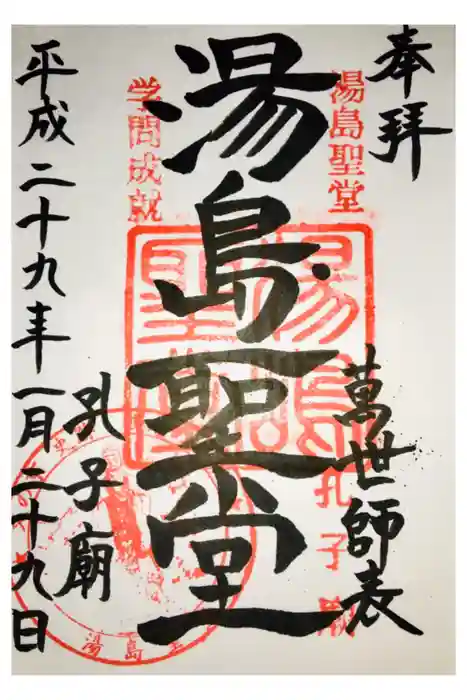 奉拝
湯島聖堂
萬世師表
孔子廟
湯島聖堂
湯島聖堂
学問成就
孔子廟
平成二十九年一月二十九日
湯島聖